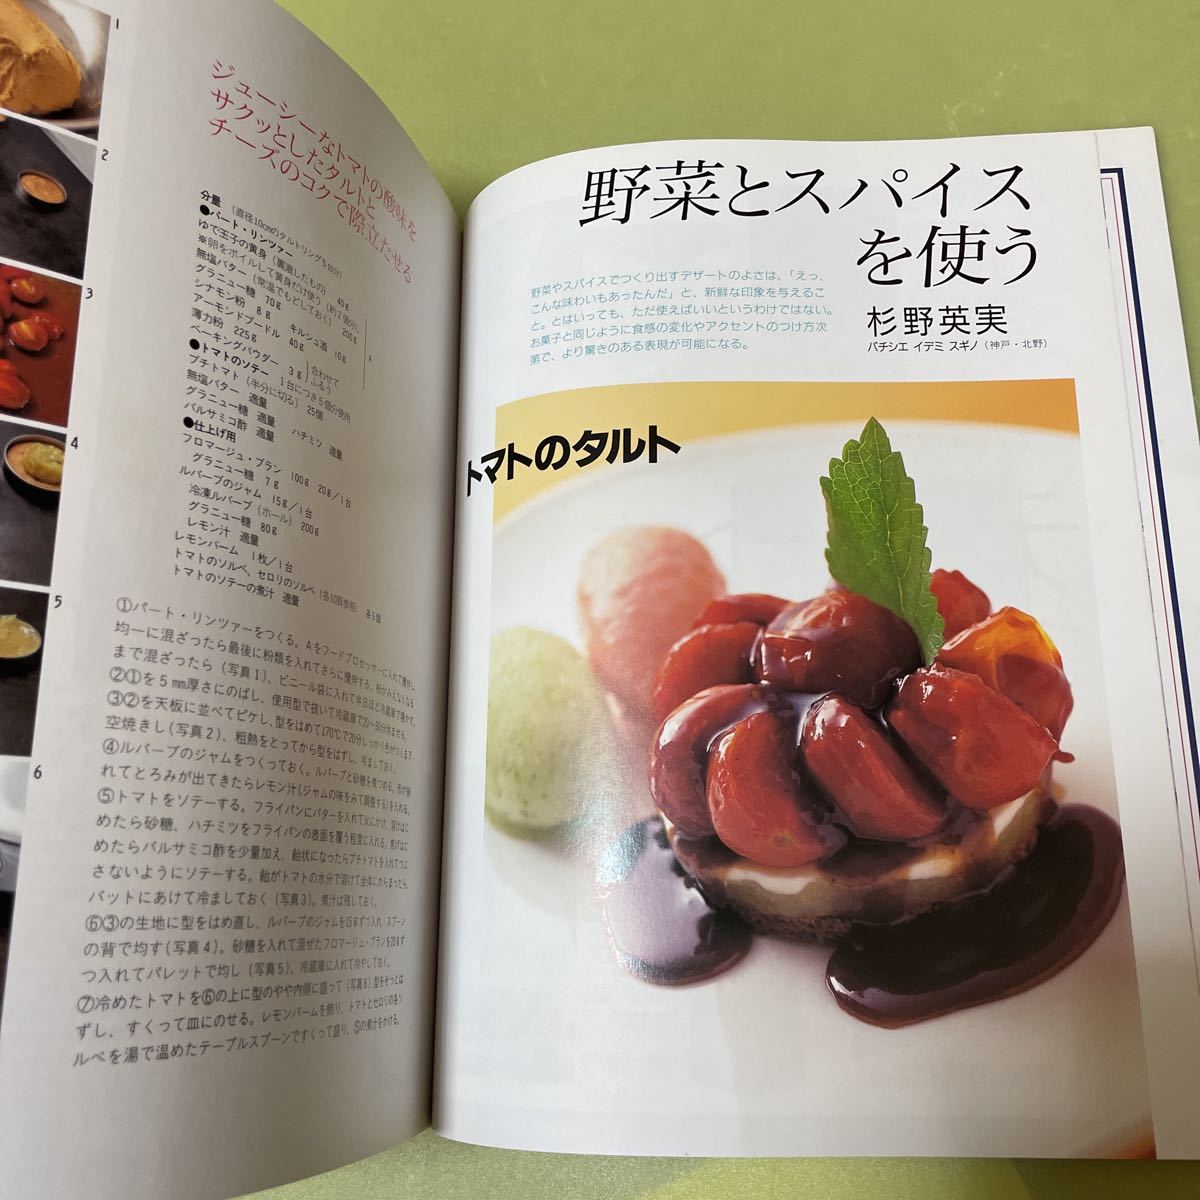 ジューシーなトマトの酸味を
サクッとしたタルトと
チーズのコクで際立たせる
分量 (直径10cmのタルトリング5台分)
●パート・リンツァー
ゆで玉子の黄身(裏漉したもの) 40g
※卵をボイルして黄身だけ使う(約2個分)。
無塩バター(常温でもどしておく) 200g
グラニュー糖 70g キルシュ酒 10g
シナモン粉 8g
アーモンドプードル 40g
A
薄力粉 225g
ベーキングパウダー 3g
合わせて
ふるう
●トマトのソテー 1台につき5個分使用
プチトマト(半分に切る) 25個
無塩バター 適量
グラニュー糖 適量 ハチミツ 適量
バルサミコ酢 適量
●仕上げ用
フロマージュ・ブラン 100g 20g/1台
グラニュー糖 7g
ルバーブのジャム 15g/1台
冷凍ルバーブ(ホール) 200g
グラニュー糖 80g
レモン汁 適量
レモンバーム 1枚/1台
トマトのソルベ、セロリのソルベ(各10頁参照) 各5個
トマトのソテーの煮汁 適量
①パート・リンツァーをつくる。Aをフードプロセッサーに入れて攪拌し、
均一に混ざったら最後に粉類を入れてさらに攪拌する。粉がみえなくなる
まで混ざったら(写真1)、ビニール袋に入れて半日ほど冷蔵庫で寝かす。
②①を5mm厚さにのばし、使用型で抜いて冷蔵庫で20〜30分休ませる。
③②を天板に並べてピケし、型をはめて170℃で20分しっかり色がつくまで
空焼きし(写真2)、粗熱をとってから型をはずし、冷ましておく。
④ルバーブのジャムをつくっておく。ルバーブと砂糖を煮つめる。形が崩
れてとろみが出てきたらレモン汁(ジャムの味をみて調整する)を入れる。
⑤トマトをソテーする。フライパンにバターを入れて火にかけ、溶けはじ
めたら砂糖、ハチミツをフライパンの表面を覆う程度に入れる。焦げはじ
めたらバルサミコ酢を少量加え、飴状になったらプチトマトを入れてつぶ
さないようにソテーする。飴がトマトの水分で溶けて全体にからまったら、
バットにあけて冷ましておく(写真3)。煮汁は残しておく。
⑥③の生地に型をはめ直し、ルバーブのジャムを15gずつ入れ、スプーン
の背で均す(写真4)。砂糖を入れて混ぜたフロマージュ・ブランを20gず
つ入れてパレットで均し(写真5)、冷蔵庫に入れて冷やしておく。
⑦冷めたトマトを⑥の上に型のやや内側に盛って(写真6)型をそっとは
ずし、すくって皿にのせる。レモンバームを飾り、トマトとセロリの各ソ
ルベを湯で温めたテーブルスプーンですくって盛り、⑤の煮汁をかける。
1
2
3
4
5
6
野菜とスパイス
を使う
野菜やスパイスでつくり出すデザートのよさは、「えっ、
こんな味わいもあったんだ」と、新鮮な印象を与えるこ
と。とはいっても、ただ使えばいいというわけではない。
お菓子と同じように食感の変化やアクセントのつけ方次
第で、より驚きのある表現が可能になる。
杉野英実
パチシエ イデミ スギノ(神戸・北野)
トマトのタルト